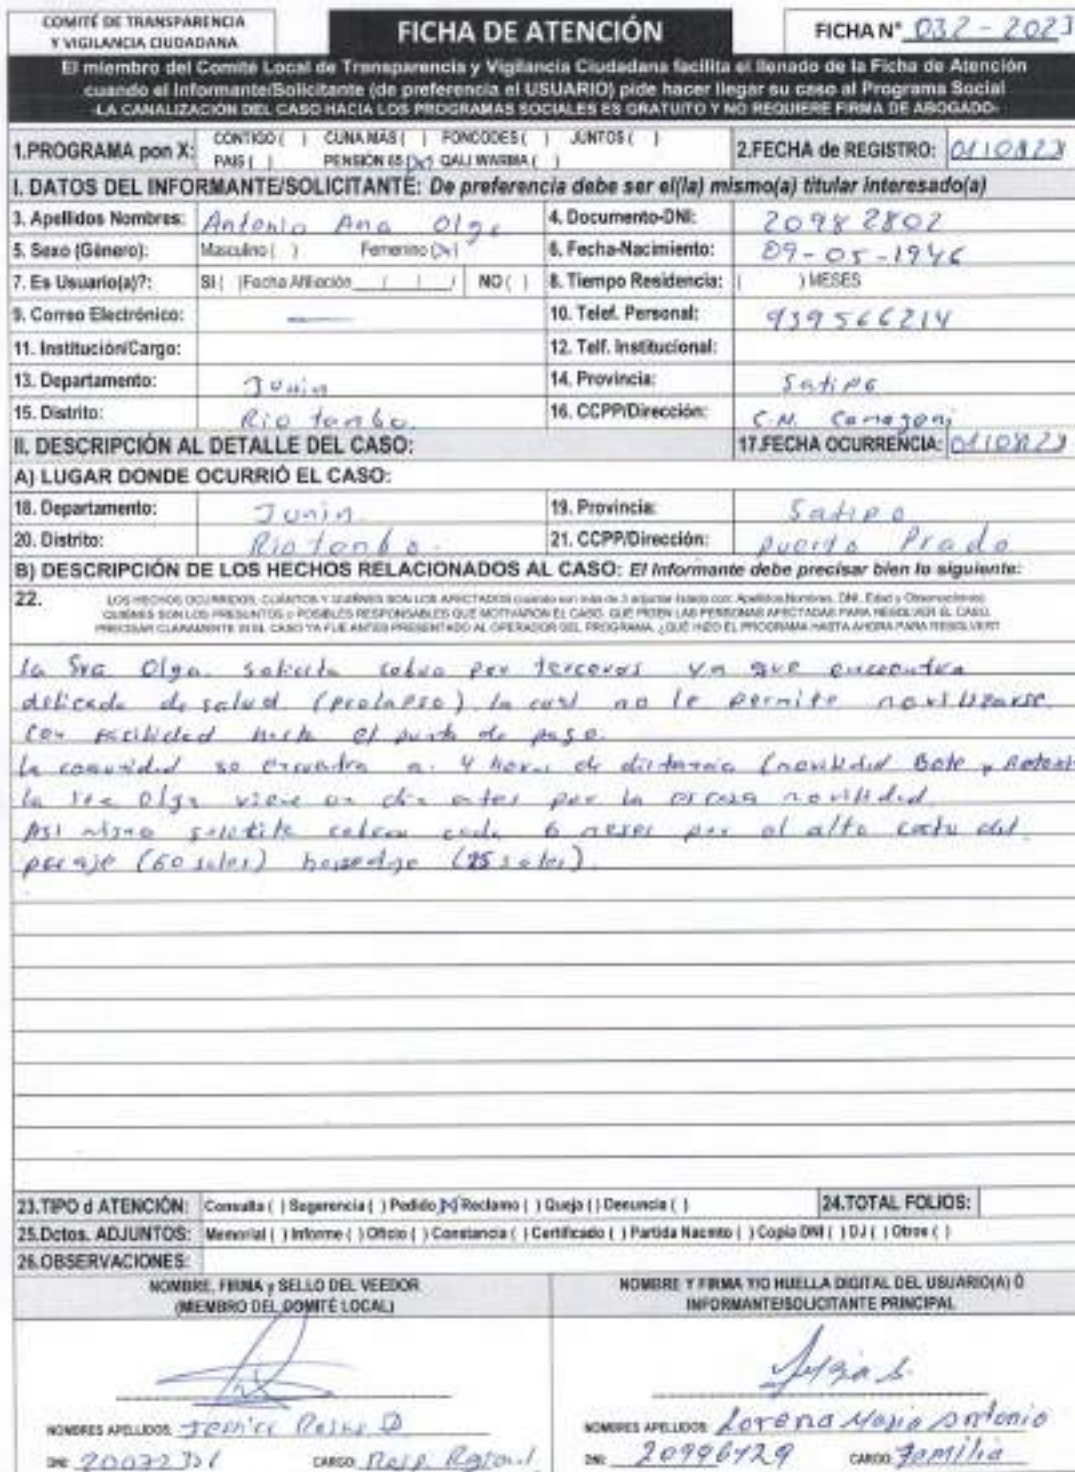 COMITÉ DE TRANSPARENCIA
Y VIGILANCIA CIUDADANA
FICHA DE ATENCIÓN
FICHA N° 032 - 2023
El miembro del Comité Local de Transparencia y Vigilancia Ciudadana facilita el llenado de la Ficha de Atención
cuando el Informante/Solicitante (de preferencia el USUARIO) pide hacer llegar su caso al Programa Social
-LA CANALIZACIÓN DEL CASO HACIA LOS PROGRAMAS SOCIALES ES GRATUITO Y NO REQUIERE FIRMA DE ABOGADO-
1.PROGRAMA pon X: CONTIGO ( ) CUNA MAS ( ) FONCODES ( ) JUNTOS ( )
PAIS ( ) PENSIÓN 65 (X) QALI WARMA ( )
2.FECHA de REGISTRO: 0110823
I. DATOS DEL INFORMANTE/SOLICITANTE: De preferencia debe ser el(la) mismo(a) titular interesado(a)
3. Apellidos Nombres: Antonio Ana Olga 4. Documento-DNI: 20982802
5. Sexo (Género): Masculino ( ) Femenino (X) 6. Fecha-Nacimiento: 09-05-1946
7. Es Usuario(a)?: SI ( ) Fecha Afiliación / / NO ( ) 8. Tiempo Residencia: ( ) MESES
9. Correo Electrónico: — 10. Telef. Personal: 939566214
11. Institución/Cargo: 12. Telf. Institucional:
13. Departamento: Junin 14. Provincia: Satipo
15. Distrito: Rio tambo. 16. CCPP/Dirección: C.N.
II. DESCRIPCIÓN AL DETALLE DEL CASO: 17.FECHA OCURRENCIA: 0110823
A) LUGAR DONDE OCURRIÓ EL CASO:
18. Departamento: Junin 19. Provincia: Satipo
20. Distrito: Rio tambo. 21. CCPP/Dirección: puerto Prado
B) DESCRIPCIÓN DE LOS HECHOS RELACIONADOS AL CASO: El Informante debe precisar bien lo siguiente:
22. LOS HECHOS OCURRIDOS, CUÁNTOS Y QUIÉNES SON LOS AFECTADOS (cuando son más de 3 adjuntar listado con: Apellidos Nombres, DNI, Edad y Observaciones)
QUIÉNES SON LOS PRESUNTOS o POSIBLES RESPONSABLES QUE MOTIVARON EL CASO. QUE PIDEN LAS PERSONAS AFECTADAS PARA RESOLVER EL CASO.
PRECISAR CLARAMENTE SI EL CASO YA FUE ANTES PRESENTADO AL OPERADOR DEL PROGRAMA. ¿QUÉ HIZO EL PROGRAMA HASTA AHORA PARA RESOLVER?
la Sra Olga. solicita cobro por terceros ya que encuentra
delicada de salud (prolapso) la cual no le permite movilizarse
con facilidad hasta el punto de pago.
la comunidad se encuentra a 4 horas de distancia (movilidad Bote y
la Sra Olga viene un dia antes por la escasa movilidad
Asi mismo solicita cobrar cada 6 meses por el alto costo del
pasaje (60 soles) hospedaje (25 soles).
23.TIPO d ATENCIÓN: Consulta ( ) Sugerencia ( ) Pedido (X) Reclamo ( ) Queja ( ) Denuncia ( ) 24.TOTAL FOLIOS:
25.Dctos. ADJUNTOS: Memorial ( ) Informe ( ) Oficio ( ) Constancia ( ) Certificado ( ) Partida Nacmto ( ) Copia DNI ( ) DJ ( ) Otros ( )
26.OBSERVACIONES:
NOMBRE, FIRMA y SELLO DEL VEEDOR
(MIEMBRO DEL COMITÉ LOCAL)
NOMBRE Y FIRMA Y/O HUELLA DIGITAL DEL USUARIO(A) Ó
INFORMANTE/SOLICITANTE PRINCIPAL
NOMBRES APELLIDOS:
DNI: CARGO: Resp
NOMBRES APELLIDOS: Lorena Antonio
DNI: 20996429 CARGO: Familia